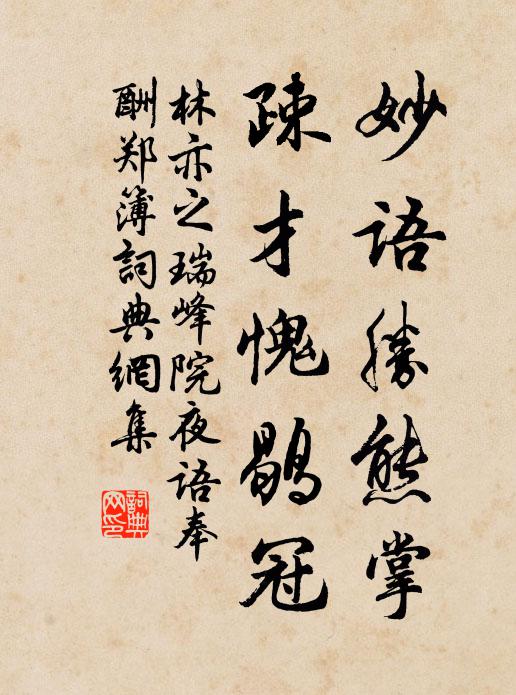 妙语勝熊掌
疎才愧鶡冠
林亦之瑞峰院夜语奉
酬郑簿詞典網集
詞典
网印